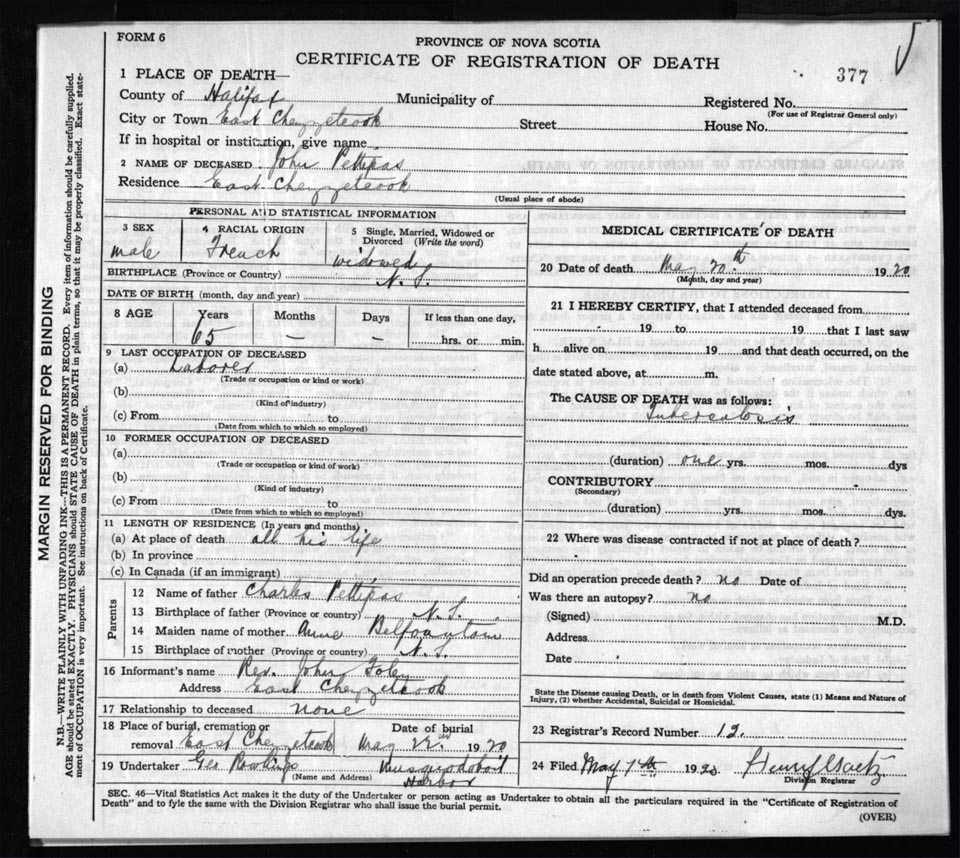 FORM 6
PROVINCE OF NOVA SCOTIA
CERTIFICATE OF REGISTRATION OF DEATH
377
1 PLACE OF DEATH—
County of Halifax Municipality of Registered No.
(For use of Registrar General only)
City or Town East Chezzetcook Street House No.
If in hospital or institution, give name
2 NAME OF DECEASED John Pettipas
Residence East Chezzetcook
(Usual place of abode)
PERSONAL AND STATISTICAL INFORMATION
3 SEX 4 RACIAL ORIGIN 5 Single, Married, Widowed or
Divorced (Write the word)
male French widowed
BIRTHPLACE (Province or Country) N.S.
DATE OF BIRTH (month, day and year)
8 AGE Years Months Days If less than one day,
65 — — hrs. or min.
9 LAST OCCUPATION OF DECEASED
(a) Laborer
(Trade or occupation or kind or work)
(b)
(Kind of industry)
(c) From to
(Date from which to which so employed)
10 FORMER OCCUPATION OF DECEASED
(a)
(Trade or occupation or kind of work)
(b)
(Kind of industry)
(c) From to
(Date from which to which so employed)
11 LENGTH OF RESIDENCE (In years and months)
(a) At place of death all his life
(b) In province
(c) In Canada (if an immigrant)
Parents
12 Name of father Charles Pettipas
13 Birthplace of father (Province or country) N.S.
14 Maiden name of mother Anne Belfountain
15 Birthplace of mother (Province or country) N.S.
16 Informant's name Rev. John Foley
Address East Chezzetcook
17 Relationship to deceased none
18 Place of burial, cremation or Date of burial
removal East Chezzetcook May 22 1920
19 Undertaker Geo Rowlings Musquodoboit
(Name and Address) Harbor
MEDICAL CERTIFICATE OF DEATH
20 Date of death May 20th 1920
(Month, day and year)
21 I HEREBY CERTIFY, that I attended deceased from
19 to 19 that I last saw
h alive on 19 and that death occurred, on the
date stated above, at m.
The CAUSE OF DEATH was as follows:
Tuberculosis
(duration) one yrs. mos. dys
CONTRIBUTORY
(Secondary)
(duration) yrs. mos. dys.
22 Where was disease contracted if not at place of death?
Did an operation precede death? no Date of
Was there an autopsy? no
(Signed) M.D.
Address
Date
State the Disease causing Death, or in death from Violent Causes, state (1) Means and Nature of
Injury, (2) whether Accidental, Suicidal or Homicidal.
23 Registrar's Record Number 12.
24 Filed May 19
Division Registrar
SEC. 46—Vital Statistics Act makes it the duty of the Undertaker or person acting as Undertaker to obtain all the particulars required in the "Certificate of Registration of
Death" and to fyle the same with the Division Registrar who shall issue the burial permit.
(OVER)
MARGIN RESERVED FOR BINDING
N.B.—WRITE PLAINLY WITH UNFADING INK—THIS IS A PERMANENT RECORD. Every item of information should be carefully supplied.
AGE should be stated EXACTLY. PHYSICIANS should STATE CAUSE OF DEATH in plain terms, so that it may be properly classified. Exact state-
ment of OCCUPATION is very important. See instructions on back of Certificate.